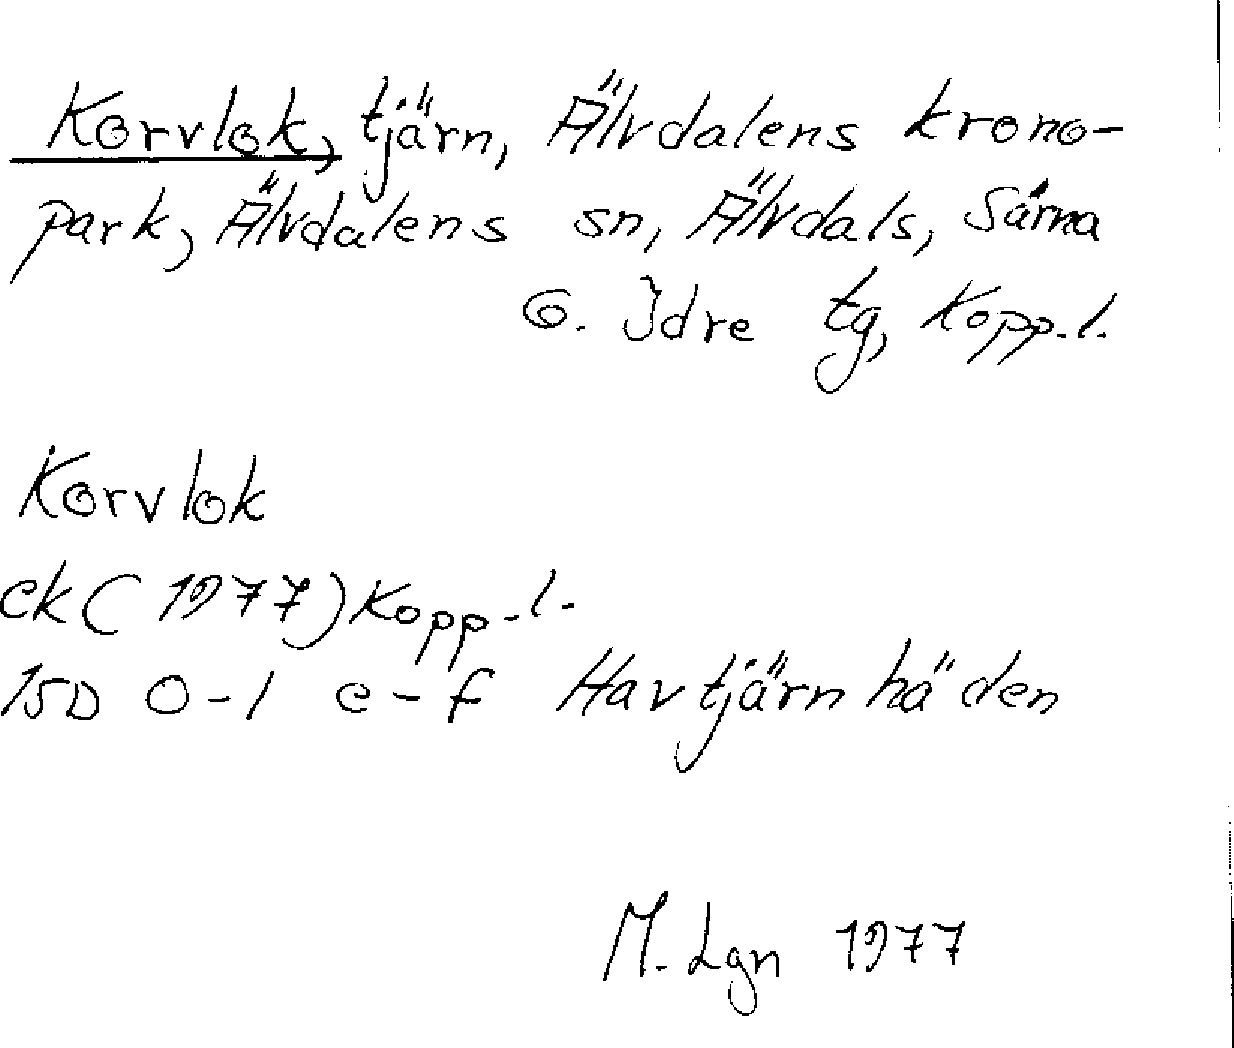 Korvlok, tjärn, Älvdalens krono-
park, Älvdalens sn, Älvdals, Särna
o. Idre tg, Kopp.l.
Korvlok
ek (1977) Kopp.l.
15D 0-1 e-f Havtjärnhäden
M. Lgn 1977